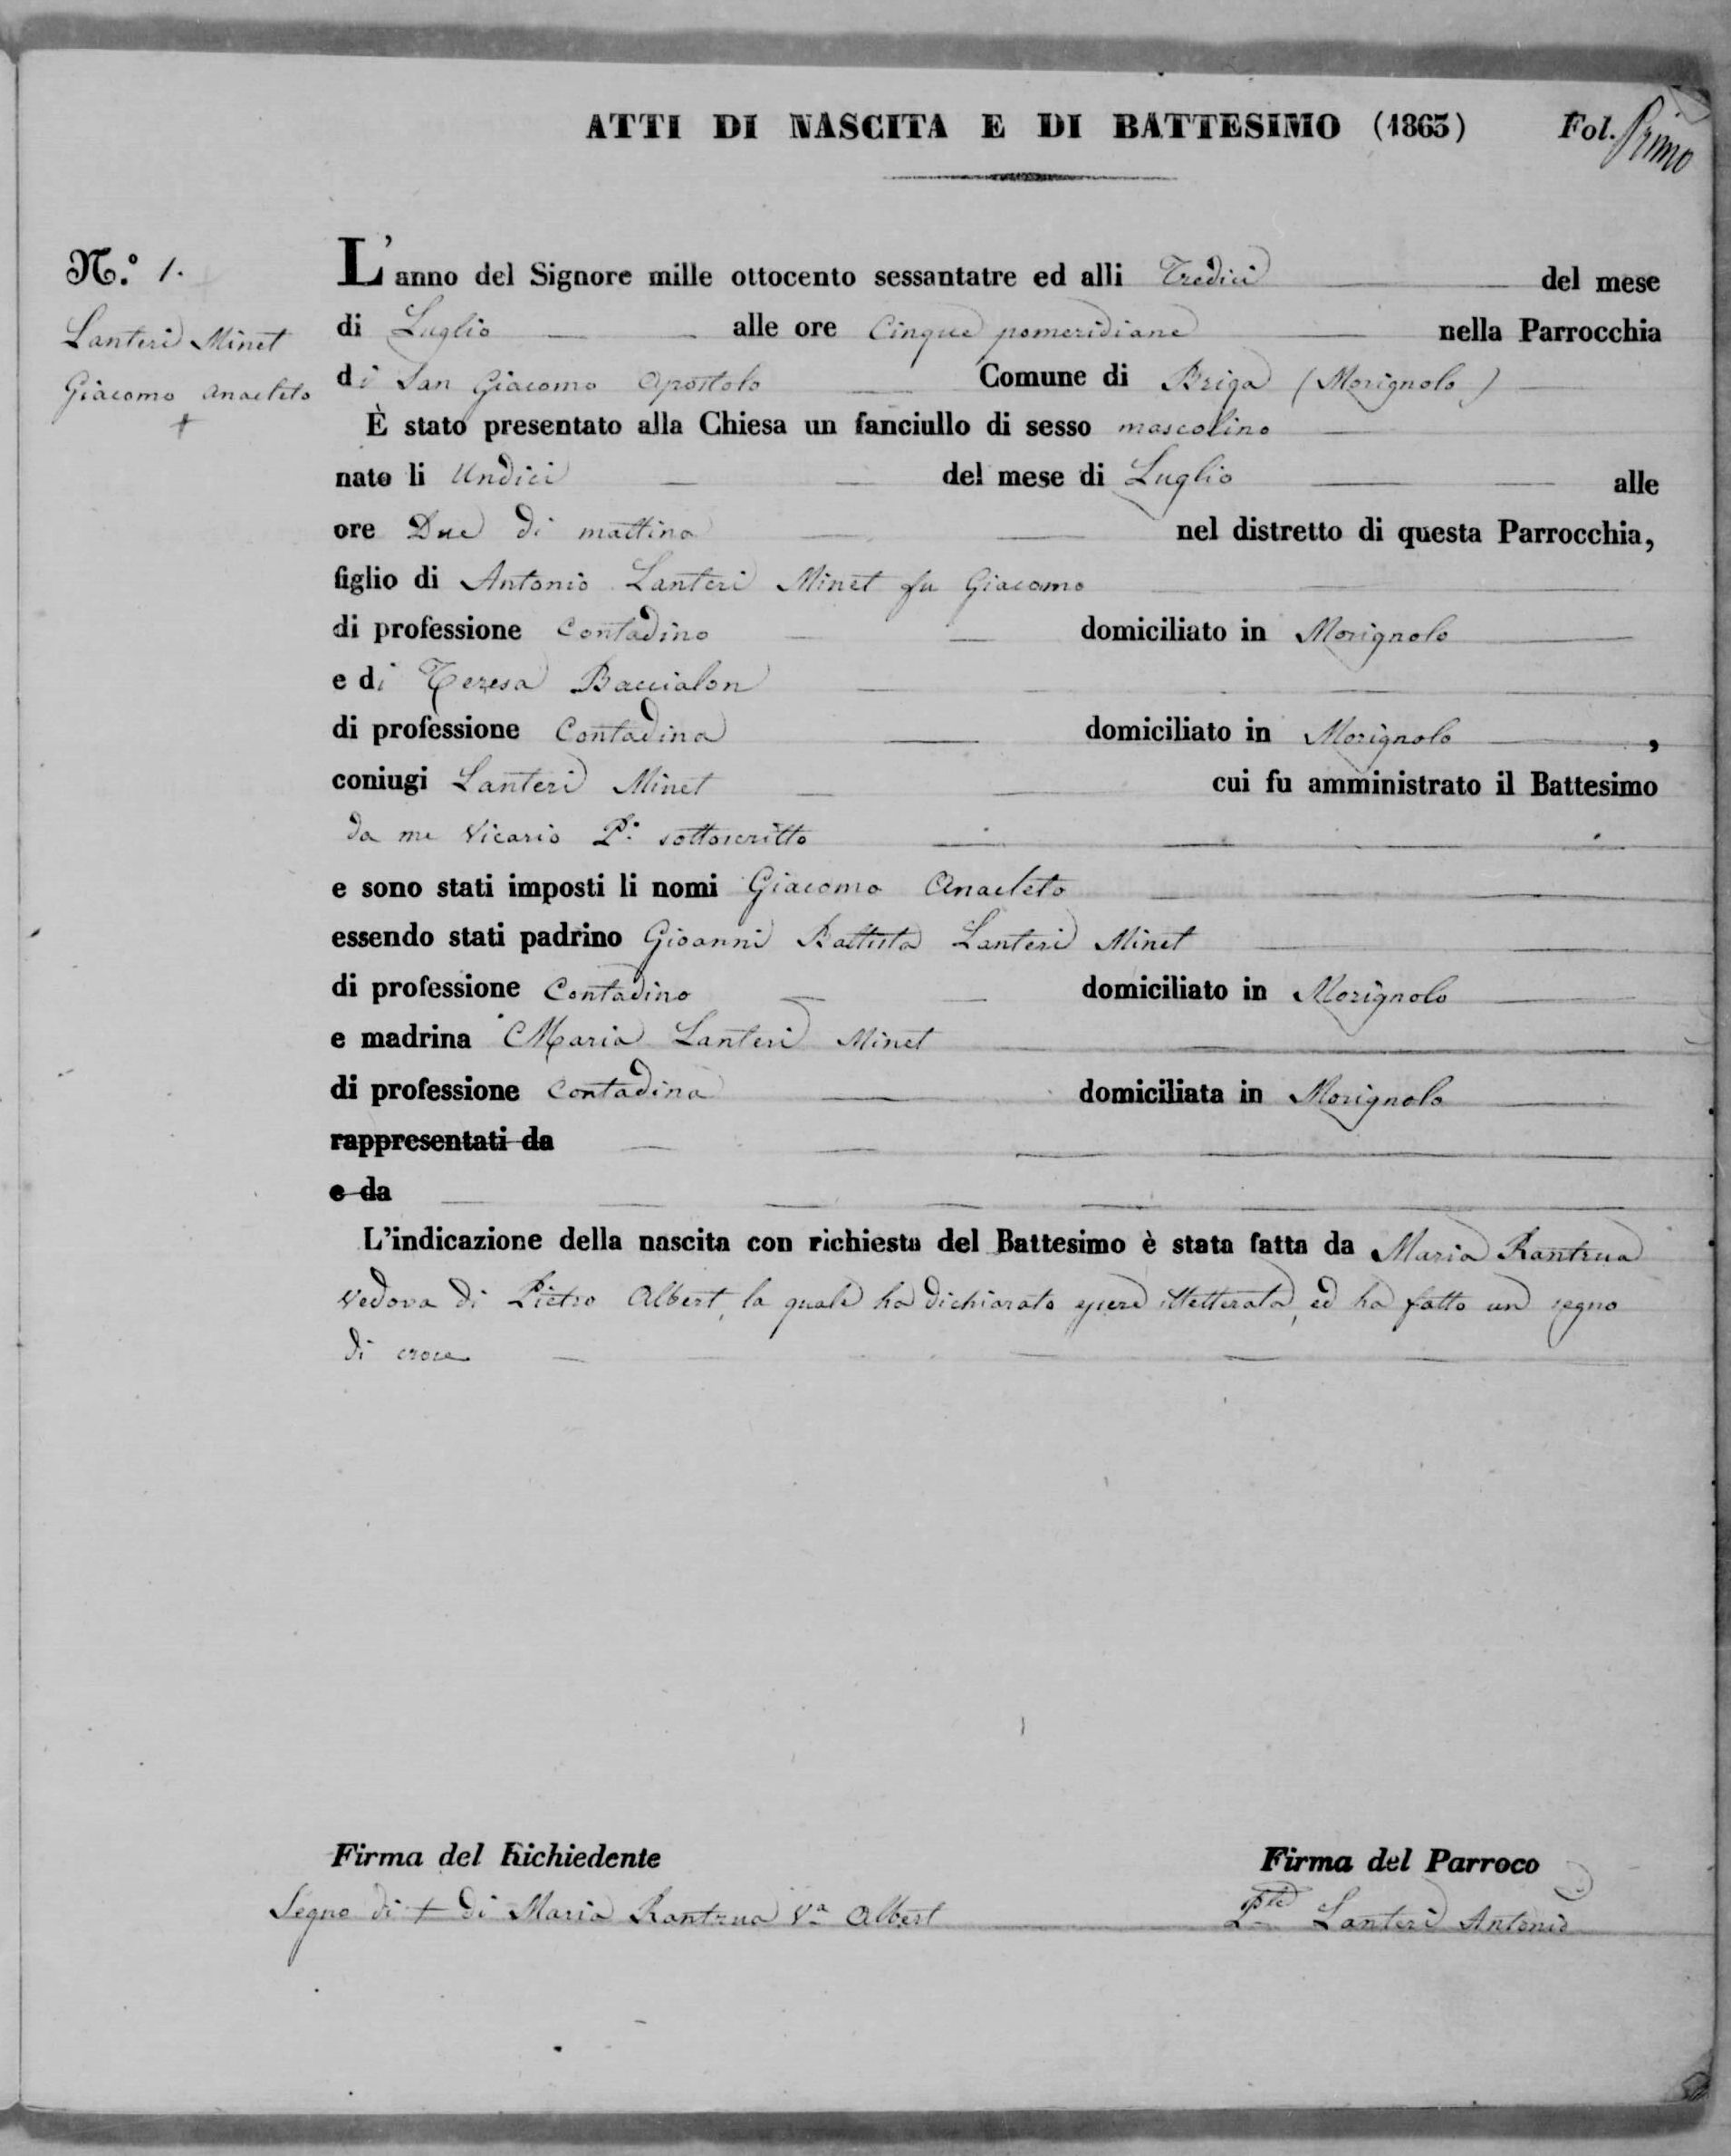 ATTI DI NASCITA E DI BATTESIMO (1863) Fol. Primo
N.º 1.
Lanteri Minet
Giacomo Anacleto
+
L'anno del Signore mille ottocento sessantatre ed alli Tredici del mese
di Luglio alle ore Cinque pomeridiane nella Parrocchia
di San Giacomo Apostolo Comune di Briga (Morignolo)
È stato presentato alla Chiesa un fanciullo di sesso mascolino
nato li Undici del mese di Luglio alle
ore Due di mattina nel distretto di questa Parrocchia,
figlio di Antonio Lanteri Minet fu Giacomo
di professione Contadino domiciliato in Morignolo
e di Teresa Baccialon
di professione Contadina domiciliato in Morignolo,
coniugi Lanteri Minet cui fu amministrato il Battesimo
da me Vicario P.º sottoscritto
e sono stati imposti li nomi Giacomo Anacleto
essendo stati padrino Gioanni Battista Lanteri Minet
di professione Contadino domiciliato in Morignolo
e madrina Maria Lanteri Minet
di professione Contadina domiciliata in Morignolo
rappresentati da
e da
L'indicazione della nascita con richiesta del Battesimo è stata fatta da Maria Rantrua
Vedova di Pietro Albert, la quale ha dichiarato essere illetterata, ed ha fatto un segno
di croce
Firma del Richiedente Firma del Parroco
Segno di + di Maria Rantrua Va Albert Lanteri Antonio